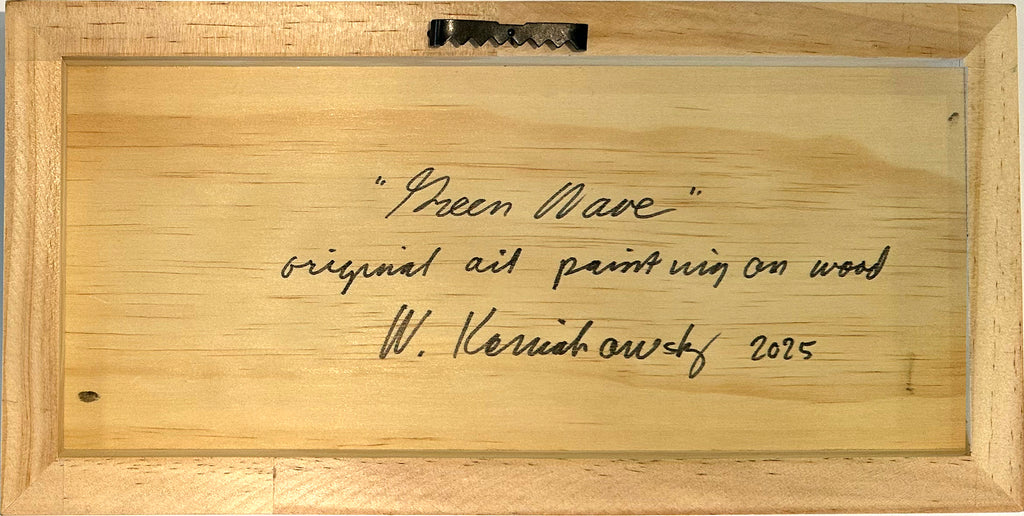 "Green Wave"
original oil painting on wood
W. 2025